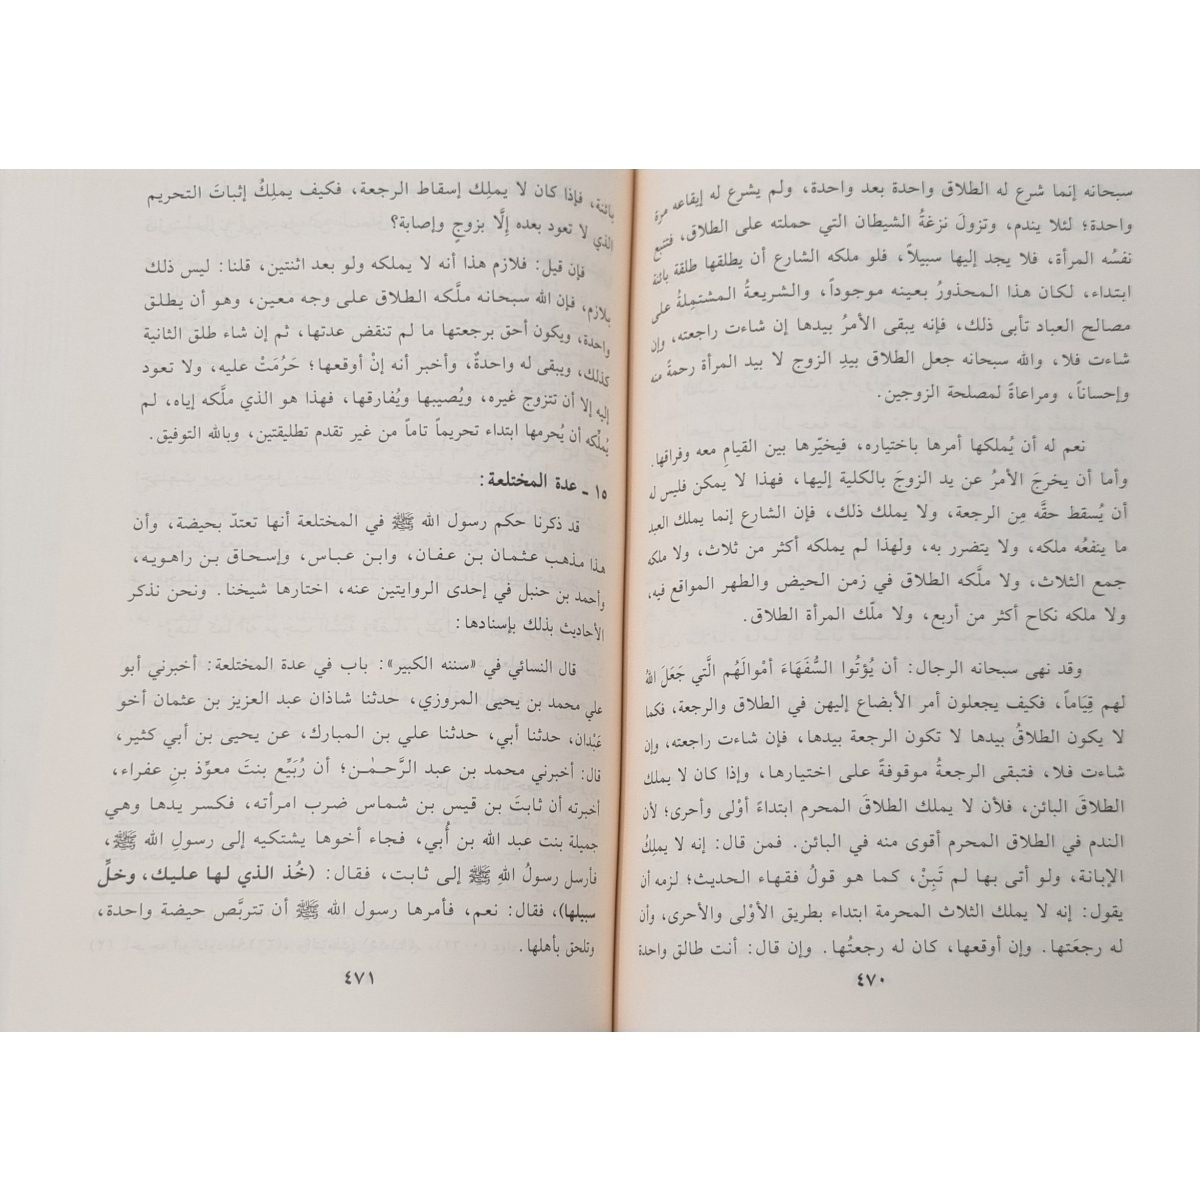 سبحانه إنما شرع له الطلاق واحدة بعد واحدة، ولم يشرع له إيقاعه مرة
واحدة؛ لئلا يندم، وتزولَ نزغةُ الشيطان التي حملته على الطلاق، فتتبع
نفسُه المرأة، فلا يجد إليها سبيلاً، فلو ملكه الشارع أن يطلقها طلقة بائنة
ابتداء، لكان هذا المحذورُ بعينه موجوداً، والشريعةُ المشتمِلةُ على
مصالح العباد تأبى ذلك، فإنه يبقى الأمرُ بيدها إن شاءت راجعته، وإن
شاءت فلا، والله سبحانه جعل الطلاق بيدِ الزوج لا بيد المرأة رحمةً منه
وإحساناً، ومراعاةً لمصلحة الزوجين.
نعم له أن يُملكها أمرها باختياره، فيخيّرها بين القيامِ معه وفراقها.
وأما أن يخرجَ الأمرُ عن يد الزوجَ بالكلية إليها، فهذا لا يمكن فليس له
أن يُسقط حقَّه مِن الرجعة، ولا يملك ذلك، فإن الشارع إنما يملك العبد
ما ينفعُه ملكه، ولا يتضرر به، ولهذا لم يملكه أكثر من ثلاث، ولا ملكه
جمع الثلاث، ولا ملَّكه الطلاق في زمن الحيض والطهر المواقع فيه،
ولا ملكه نكاح أكثر من أربع، ولا ملّك المرأة الطلاق.
وقد نهى سبحانه الرجال: أن يُؤتُوا السُّفَهَاءَ أمْوالَهُم الَّتي جَعَلَ اللهُ
لهم قِيَاماً، فكيف يجعلون أمر الأبضاع إليهن في الطلاق والرجعة، فكما
لا يكون الطلاقُ بيدها لا تكون الرجعة بيدها، فإن شاءت راجعته، وإن
شاءت فلا، فتبقى الرجعةُ موقوفةً على اختيارها، وإذا كان لا يملك
الطلاقَ البائن، فلأن لا يملك الطلاقَ المحرم ابتداءً أوْلى وأحرى؛ لأن
الندم في الطلاق المحرم أقوى منه في البائن. فمن قال: إنه لا يملِكُ
الإبانة، ولو أتى بها لم تَبِنْ، كما هو قولُ فقهاء الحديث؛ لزمه أن
يقول: إنه لا يملك الثلاث المحرمة ابتداء بطريق الأوْلى والأحرى، وأن
له رجعَتها. وإن أوقعها، كان له رجعتُها. وإن قال: أنت طالق واحدة
٤٧٠
بائنة، فإذا كان لا يملِك إسقاط الرجعة، فكيف يملِكُ إثباتَ التحريم
الذي لا تعود بعده إلَّا بزوجٍ وإصابة؟
فإن قيل: فلازم هذا أنه لا يملكه ولو بعد اثنتين، قلنا: ليس ذلك
بلازم، فإن الله سبحانه ملَّكه الطلاق على وجه معين، وهو أن يطلق
واحدة، ويكون أحق برجعتها ما لم تنقض عدتها، ثم إن شاء طلق الثانية
كذلك، ويبقى له واحدةٌ، وأخبر أنه إنْ أوقعها؛ حَرُمَتْ عليه، ولا تعود
إليه إلا أن تتزوج غيره، ويُصيبها ويُفارقها، فهذا هو الذي ملَّكه إياه، لم
يُملِّكه أن يُحرمها ابتداء تحريماً تاماً من غير تقدم تطليقتين، وبالله التوفيق.
١٥ - عدة المختلعة:
قد ذكرنا حكم رسول الله ﷺ في المختلعة أنها تعتدّ بحيضة، وأن
هذا مذهب عثمان بن عفان، وابن عباس، وإسحاق بن راهويه،
وأحمد بن حنبل في إحدى الروايتين عنه، اختارها شيخنا. ونحن نذكر
الأحاديث بذلك بإسنادها:
قال النسائي في «سننه الكبير»: باب في عدة المختلعة: أخبرني أبو
علي محمد بن يحيى المروزي، حدثنا شاذان عبد العزيز بن عثمان أخو
عَبْدان، حدثنا أبي، حدثنا علي بن المبارك، عن يحيى بن أبي كثير،
قال: أخبرني محمد بن عبد الرَّحمٰن؛ أن رُبَيِّع بنتَ معوِّذ بنِ عفراء،
أخبرته أن ثابتَ بن قيس بن شماس ضرب امرأته، فكسر يدها وهي
جميلة بنت عبد الله بن أُبي، فجاء أخوها يشتكيه إلى رسولِ الله ﷺ،
فأرسل رسولُ اللهِ ﷺ إلى ثابت، فقال: (خُذ الذي لها عليك، وخلِّ
سبيلها)، فقال: نعم، فأمرها رسول الله ﷺ أن تتربَّص حيضة واحدة،
وتلحق بأهلها.
٤٧١